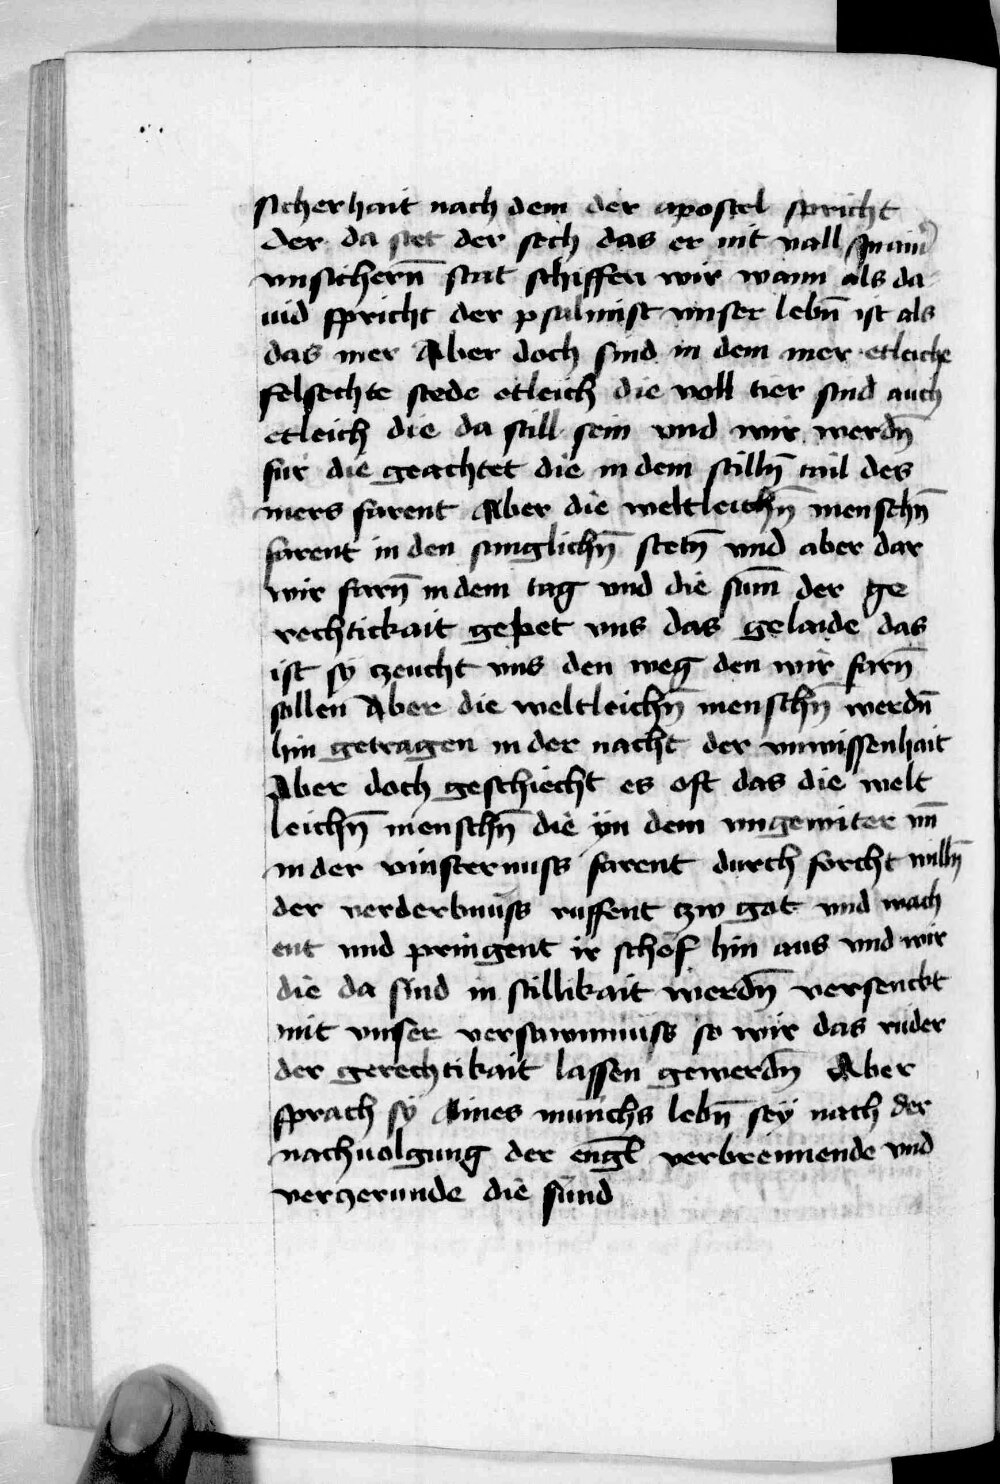 sicherhait nach dem der apostel spricht
der da stet der sech das er nit vall In ainr̄
vnsichern̄ stat schiffen wir wann als da
uid spricht der psalmist vnser lebn̄ ist als
das mer Aber doch sind in dem mer etleiche
felsechte stede etleich die voll tier sind auch
etleich die da still sein vnd wir werdn̄
fur die geachtet die in dem stilln̄ tail des
mers farent Aber die weltleichn̄ menschn̄
farent in den sunglichn̄ stetn̄ vnd aber dar
wir farn̄ in dem tag vnd die sun̄ der ge
rechtickait gepet vns das gelaide das
ist sy tzeucht vns den weg den wir farn̄
sollen Aber die weltleichn̄ menschn̄ werdn̄
hin getragen in der nacht der vnwissenhait
Aber doch geschiecht es oft das die welt
leichn̄ menschn̄ die yn dem vngewiter vn̄
in der vinsternuss farent durch forcht willn̄
der verderbnuss ruffent tzw got vnd wach
ent vnd pringent ir schef hin aus vnd wir
die da sind in stillikait werdn̄ versenckt
mit vnser versawmnuss so wir das ruder
der gerechtikait lassen gewerdn̄ Aber
sprach sy Aines munichs lebn̄ sey nach der
nachuolgung der engl̄ verbrennende vnd
verczerunde die sund